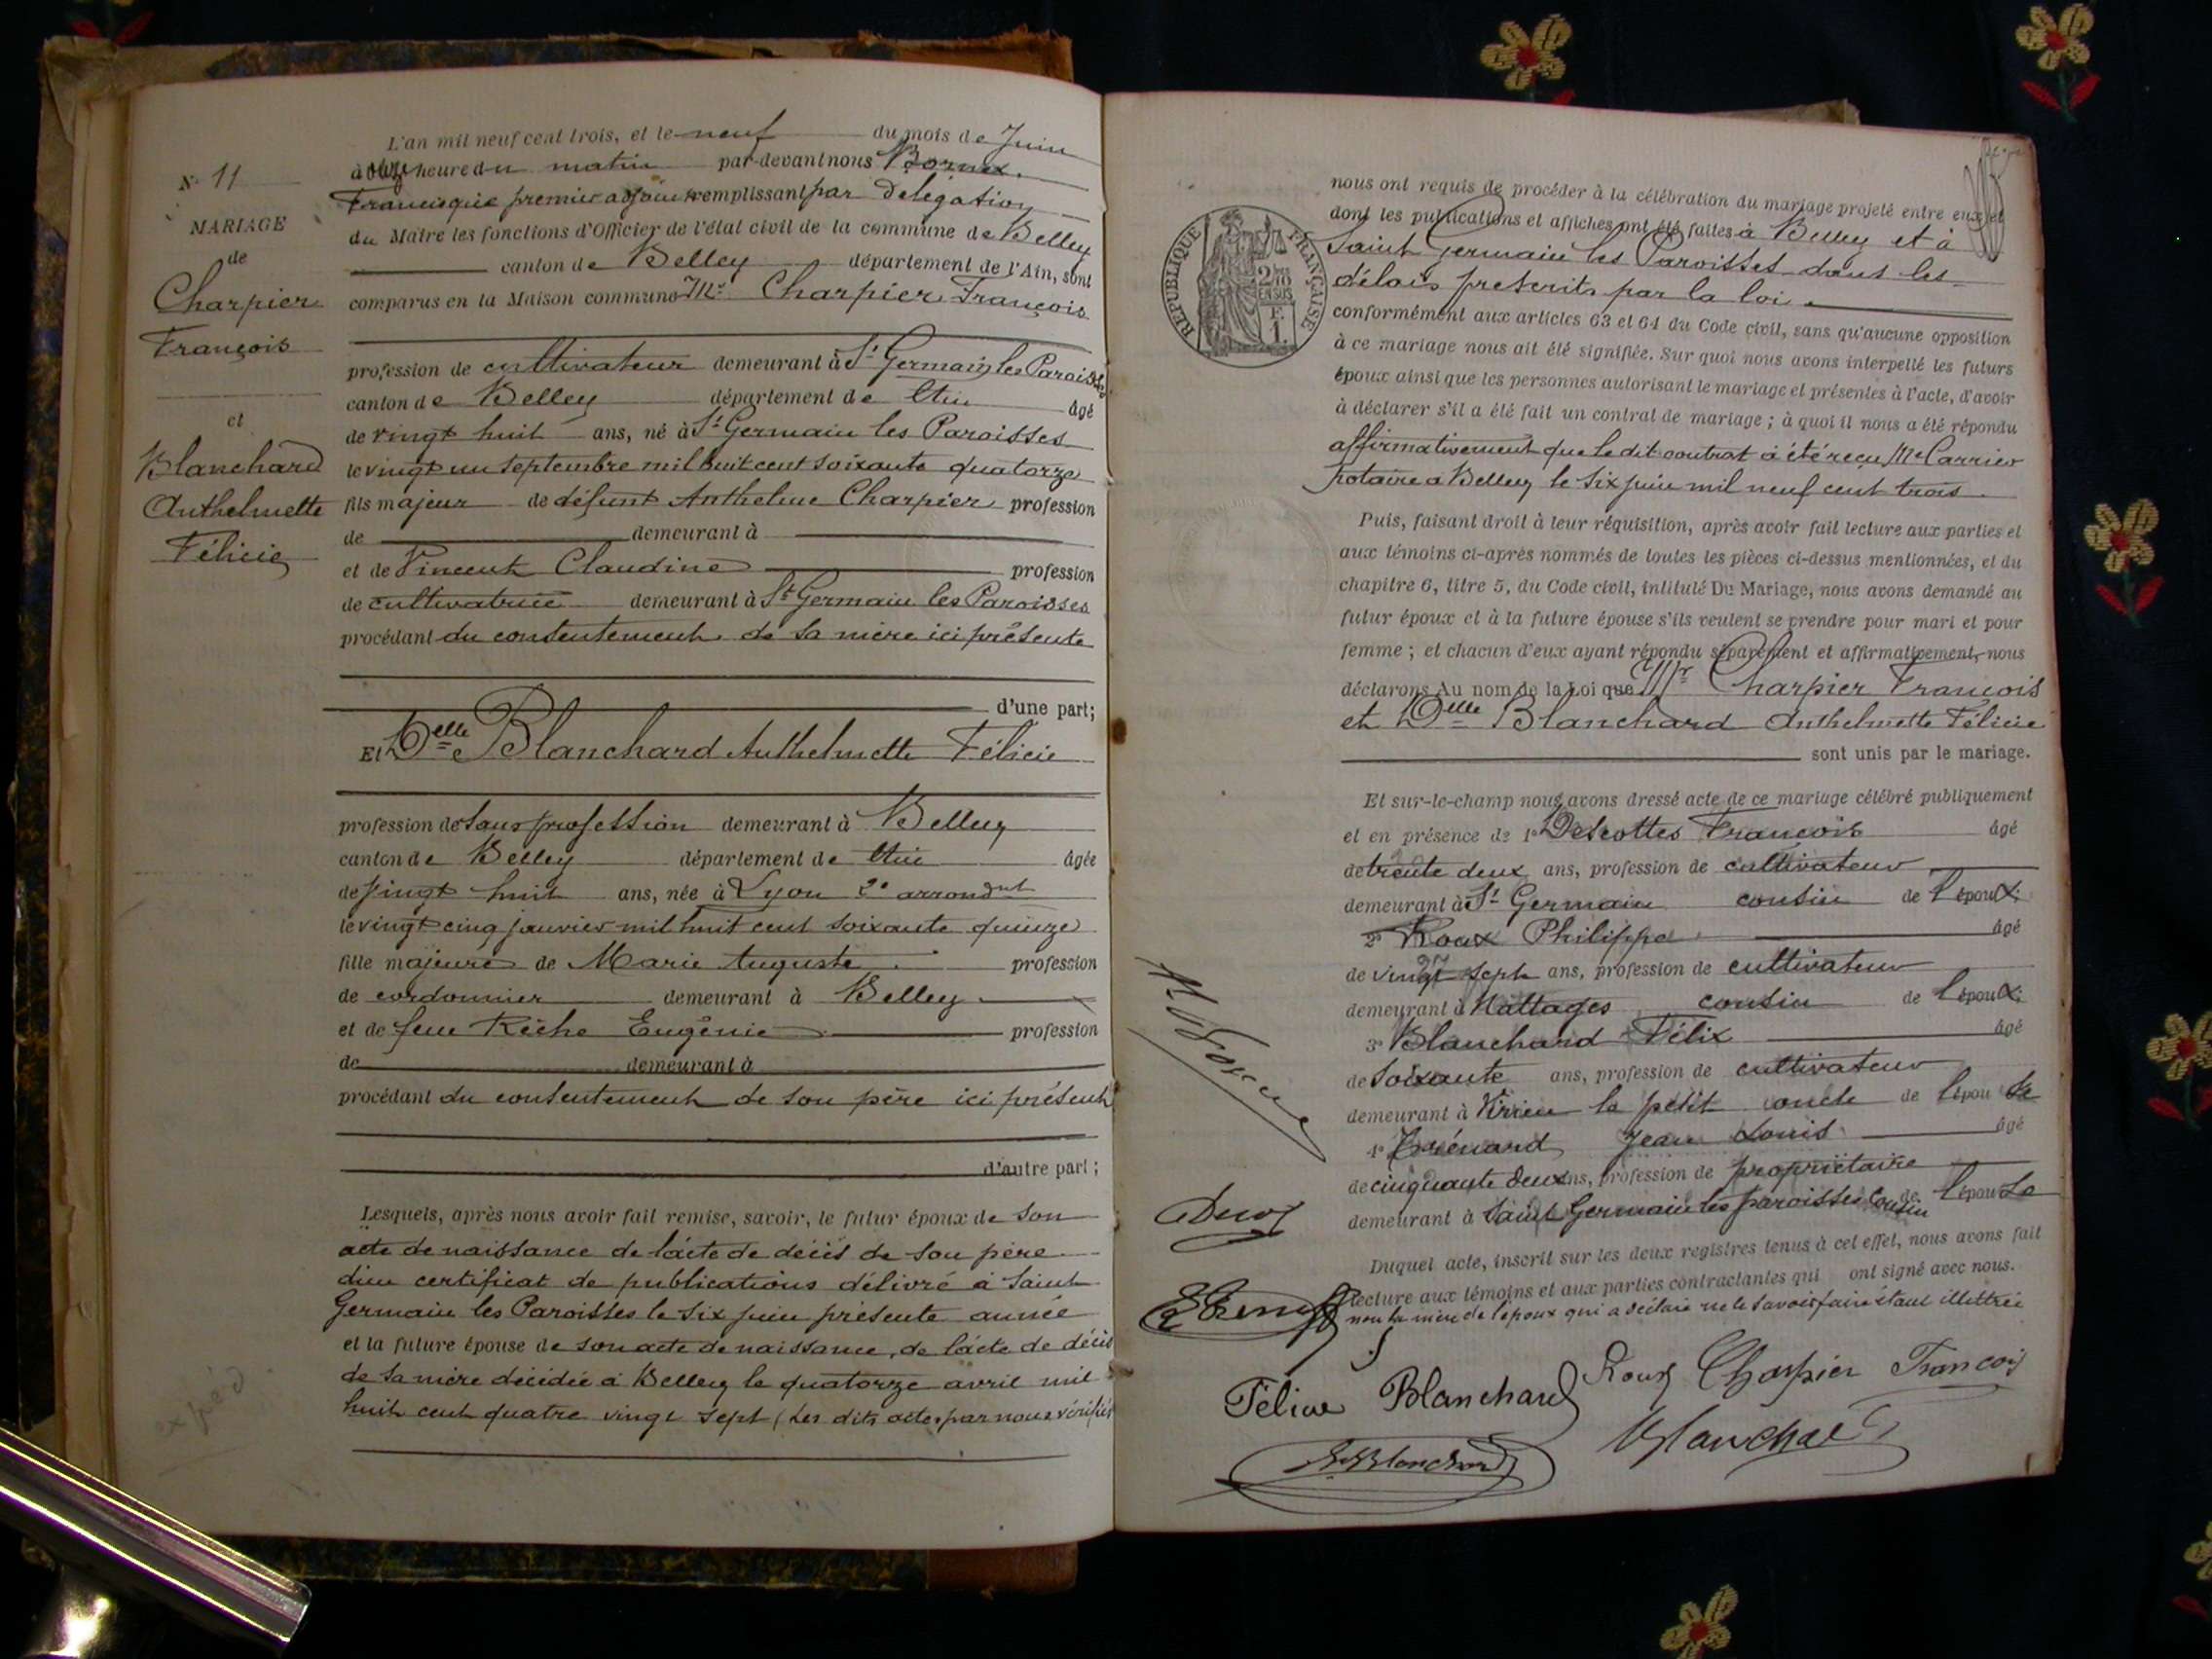 L'an mil neuf cent trois, et le neuf du mois de Juin
à onze heure du matin par-devant nous Bornex
Francisque premier adjoint remplissant par délégation
du Maire les fonctions d'Officier de l'état civil de la commune de Belley
canton de Belley département de l'Ain, sont
comparus en la Maison commune Mr Charpier François
profession de cultivateur demeurant à St Germain les Paroisses
canton de Belley département de Ain âgé
de vingt huit ans, né à St Germain les Paroisses
le vingt un septembre mil huit cent soixante quatorze
fils majeur de défunt Anthelme Charpier profession
de demeurant à
et de Vincent Claudine profession
de cultivatrice demeurant à St Germain les Paroisses
procédant du consentement de sa mère ici présente
d'une part;
Et Delle Blanchard Anthelmette Félicie
profession de sans profession demeurant à Belley
canton de Belley département de Ain âgée
de vingt huit ans, née à Lyon 2e arrondnt
le vingt cinq janvier mil huit cent soixante quinze
fille majeure de Marie Auguste profession
de cordonnier demeurant à Belley
et de feue Rêche Eugénie profession
de demeurant à
procédant du consentement de son père ici présent
d'autre part;
Lesquels, après nous avoir fait remise, savoir, le futur époux de son
acte de naissance de l'acte de décès de son père
d'un certificat de publications délivré à Saint
Germain les Paroisses le six juin présente année
et la future épouse de son acte de naissance, de l'acte de décès
de sa mère décédée à Belley le quatorze avril mil
huit cent quatre vingt sept (les dits actes par nous vérifiés
N° 11
MARIAGE
de
Charpier
François
et
Blanchard
Anthelmette
Félicie
expéd
nous ont requis de procéder à la célébration du mariage projeté entre eux et
dont les publications et affiches ont été faites à Belley et à
Saint Germain les Paroisses dans les
délais prescrits par la loi
conformément aux articles 63 et 64 du Code civil, sans qu'aucune opposition
à ce mariage nous ait été signifiée. Sur quoi nous avons interpellé les futurs
époux ainsi que les personnes autorisant le mariage et présentes à l'acte, d'avoir
à déclarer s'il a été fait un contrat de mariage ; à quoi il nous a été répondu
affirmativement que le dit contrat a été reçu Me Carrier
notaire a Belley le six juin mil neuf cent trois.
Puis, faisant droit à leur réquisition, après avoir fait lecture aux parties et
aux témoins ci-après nommés de toutes les pièces ci-dessus mentionnées, et du
chapitre 6, titre 5, du Code civil, intitulé Du Mariage, nous avons demandé au
futur époux et à la future épouse s'ils veulent se prendre pour mari et pour
femme ; et chacun d'eux ayant répondu séparément et affirmativement, nous
déclarons Au nom de la Loi que Mr Charpier François
et Delle Blanchard Anthelmette Félicie
sont unis par le mariage.
Et sur-le-champ nous avons dressé acte de ce mariage célébré publiquement
et en présence de 1° Descottes François âgé
de trente deux ans, profession de cultivateur
demeurant à St Germain cousin de l'époux
2° Roux Philippe âgé
de vingt sept ans, profession de cultivateur
demeurant à Nattages cousin de l'époux
3° Blanchard Félix âgé
de soixante ans, profession de cultivateur
demeurant à Virieu le petit oncle de l'épouse
4° Jean Louis âgé
de cinquante deux ans, profession de propriétaire
demeurant à Saint Germain les paroisses cousin de l'épouse
Duquel acte, inscrit sur les deux registres tenus à cet effet, nous avons fait
lecture aux témoins et aux parties contractantes qui ont signé avec nous.
non la mère de l'époux qui a déclaré ne le savoir faire étant illettrée
Félicie Blanchard Roux Charpier François
Blanchard
Blanchard
REPUBLIQUE FRANÇAISE
2/10
EN SUS
F.
1.